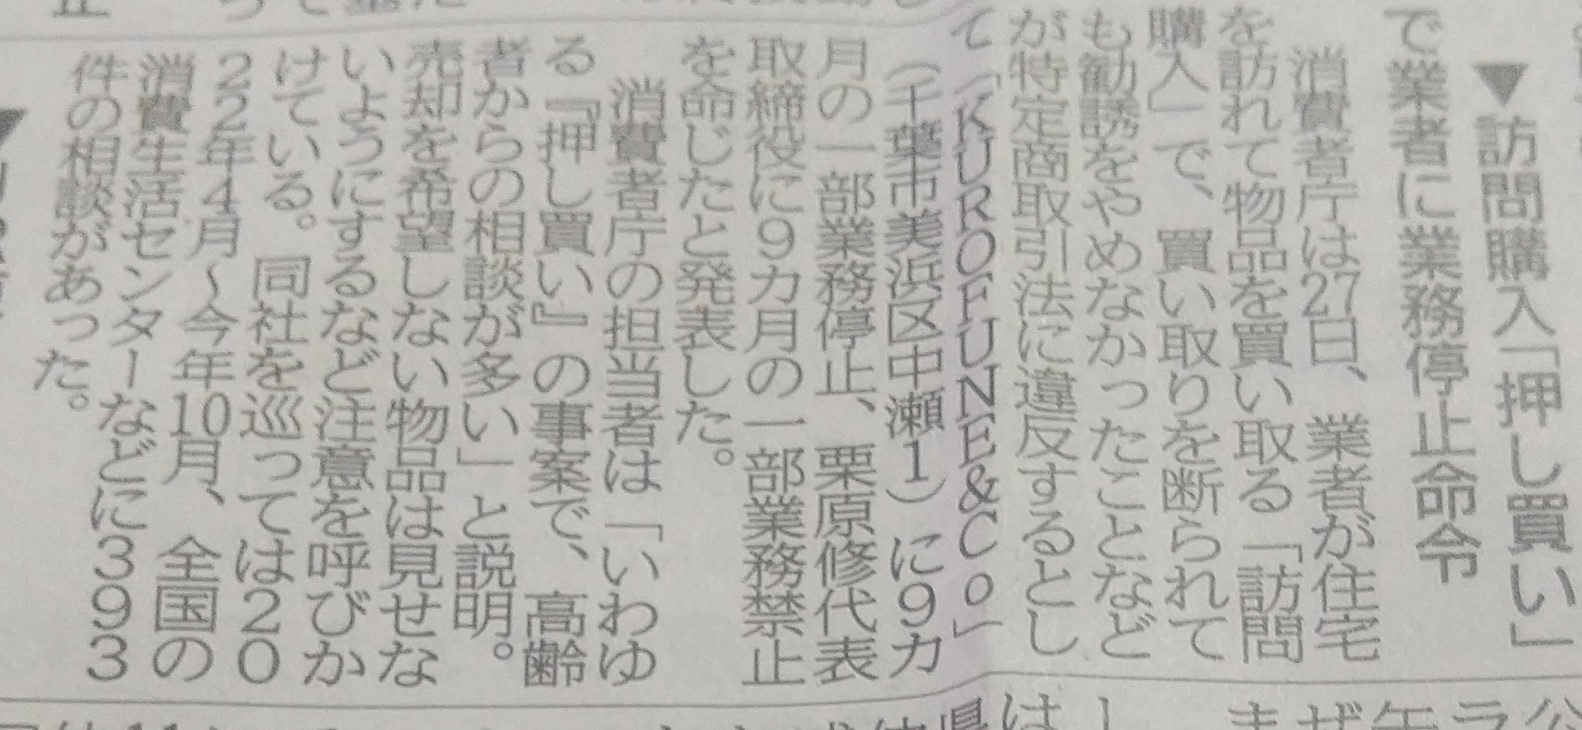 ▼訪問購入「押し買い」
で業者に業務停止命令
消費者庁は27日、業者が住宅
を訪れて物品を買い取る「訪問
購入」で、買い取りを断られて
も勧誘をやめなかったことなど
が特定商取引法に違反するとし
て「KUROFUNE&Co」
（千葉市美浜区中瀬1）に9カ
月の一部業務停止、栗原修代表
取締役に9カ月の一部業務禁止
を命じたと発表した。
消費者庁の担当者は「いわゆ
る『押し買い』の事案で、高齢
者からの相談が多い」と説明。
売却を希望しない物品は見せな
いようにするなど注意を呼びか
けている。同社を巡っては20
22年4月～今年10月、全国の
消費生活センターなどに393
件の相談があった。